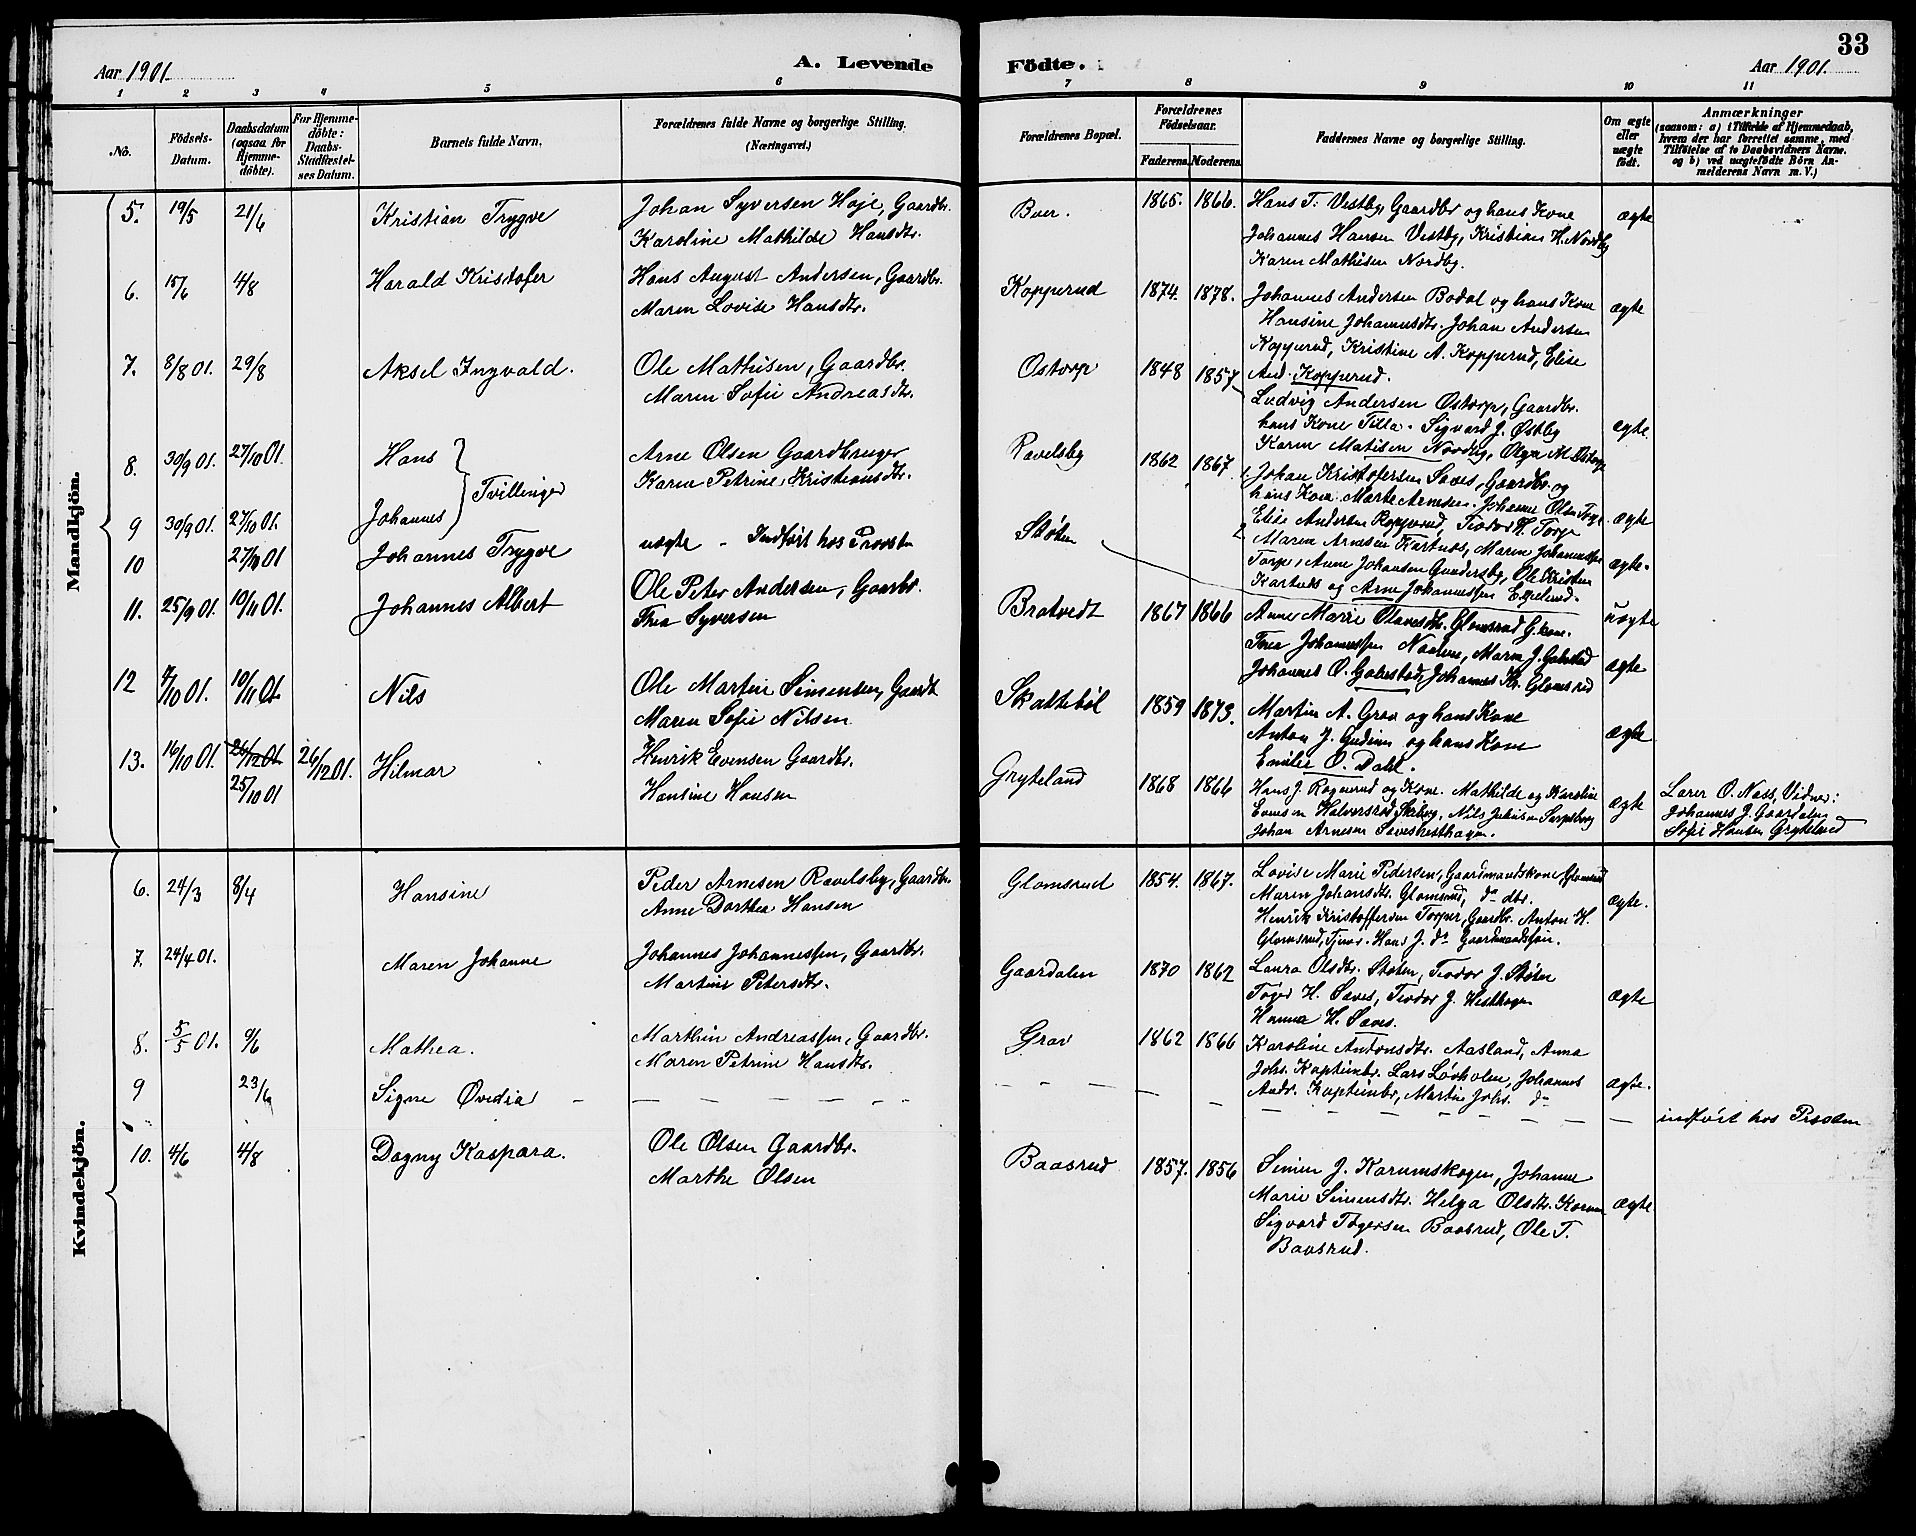 Aar 1901.
A. Levende
Födte.
33
Aar 1901.
1 2 3 4 5 6 7 8 9 10 11
No.
Födsels-Datum.
Daabsdatum (ogsaa for Hjemme-döbte).
For Hjemme-döbte: Daabs-Stadfæstel-ses Datum.
Barnets fulde Navn.
Forældrenes fulde Navne og borgerlige Stilling. (Næringsvei.)
Forældrenes Bopæl.
Forældrenes Födselsaar.
Faderens. Moderens.
Faddernes Navne og borgerlige Stilling.
Om ægte eller uægte födt.
Anmærkninger
(saasom: a) i Tilfælde af Hjemmedaab, hvem der har forrettet samme, med Tilföielse af to Daabsvidners Navne, og b) ved uægtefödte Börn An-melderens Navn m. V.)
Mandkjön.
5. 19/5 21/6 Kristian Trygve
Johan Syversen Høje, Gaardbr.
Karoline Mathilde Hansdtr.
Boer. 1865. 1866.
Hans T. Vestby, Gaardbr og hans Kone
Johannes Hansen Vestby, Kristian H. Nordby
Karen Mathisen Nordby.
ægte
6. 15/6 4/8 Harald Kristofer
Hans August Andersen, Gaardbr.
Maren Lovise Hansdtr.
Kopperud 1874. 1878.
Johannes Andersen Bodal og hans Kone
Hansine Johannesdtr. Johan Andersen
Kopperud, Kristine A. Kopperud, Elise
And. Kopperud.
ægte
7. 8/8 01. 29/8 Aksel Ingvald.
Ole Mathisen, Gaardbr.
Maren Sofie Andreasdtr.
Ostorp 1848 1857
Ludvig Andersen Ostorp, Gaardbr.
hans Kone Tilla. Sigvard J. Østby
Karen Matisen Nordby, Olga M. Ostorp
ægte
8. 30/9 01. 27/10 01. Hans
Johannes } Tvillinger
9 30/9 01. 27/10 01.
Arne Olsen Gaardbruger
Karen Petrine Kristiansdtr.
Ravelsby 1862 1867
1. Johan Kristofersen Saves, Gaardbr. og
hans Kone. Marte Arnesen. Johanne Olsen Torp
Elise Andersen Kopperud, Teodor H. Torp
2 Maren Arnesen Kartnes, Maren Johannessen
Torp, Anne Johansen Gundersby, Ole Kristen
Kartnes og Arne Johannessen Espelund.
ægte
ægte.
10 27/10 01 Johannes Trygve
uægte - Indført hos Provsten
Støten
uægte
11. 25/9 01. 10/11 01. Johannes Albert
Ole Peter Andersen, Gaardbr.
Thea Syversen
Bratvedt 1867 1866
Anne Marie Olavesdtr. Glomsrud G.kone.
Thea Johannessen Naalene, Maren J. Gabestad
Johannes O. Gabestad, Johannes Kr. Glomsrud
ægte
12 7/10 01. 10/11 01 Nils
Ole Martin Simensen, Gaardb
Maren Sofie Nilsen
Skattebøl 1859 1873.
Martin A. Grav og hans Kone
Anton J. Gudim og hans Kone
Emilie O. Dahl.
ægte
13. 16/10 01. 26/12 01 25/10 01 26/12 01. Hilmar
Henrik Evensen Gaardbr.
Hansine Hansen
Gryteland 1868 1866
Hans J. Rognerud og Kone. Mathilde og Karoline
Evensen Halvorsrød, Skiberg, Nils Julius Sarpsborg
Johan Arnesen Saveshesthagen.
ægte
Lærer O. Næss, Vidner:
Johannes J. Gaardalen
Sofie Hansen Gryteland
Kvindekjön.
6. 24/3 8/4 Hansine
Peder Arnesen Ravelsby, Gaardbr.
Anne Dorthea Hansen
Glomsrud 1854. 1867.
Lovise Marie Pedersen, Gaardmandskone Glomsrud
Maren Johansdtr. Glomsrud, do dtr.
Henrik Kristoffersen Torper, Gaardbr. Anton H.
Glomsrud, Tjener. Hans J. do Gaardmandssøn.
ægte.
7. 24/4 01. Maren Johanne
Johannes Johannessen, Gaardbr.
Martine Petersdtr.
Gaardalen 1870 1862
Laura Olsdtr. Støten, Teodor J. Støten
Toger H. Saves, Teodor J. Hesthagen
Hanna H. Saves.
ægte
8. 5/5 01. 9/6 Mathea.
Marthin Andreassen, Gaardbr.
Maren Petrine Hansdtr.
Grav 1862 1866
Karoline Antonsdtr. Aasland, Anna
Johs. Kapteinbr. Lars Løvholen, Johannes
Andr. Kapteinbr, Martin Johs. do
ægte.
9 23/6 Signe Øvedia
indført hos Provsten
10. 4/6 4/8 Dagny Kaspara.
Ole Olsen Gaardbr.
Marthe Olsen
Baasrud 1857. 1856
Simen J. Karumskogen, Johanne
Marie Simensdtr. Helga Olsdtr. Karum
Sigvard Tøgersen Baasrud, Ole T.
Baasrud.
ægte